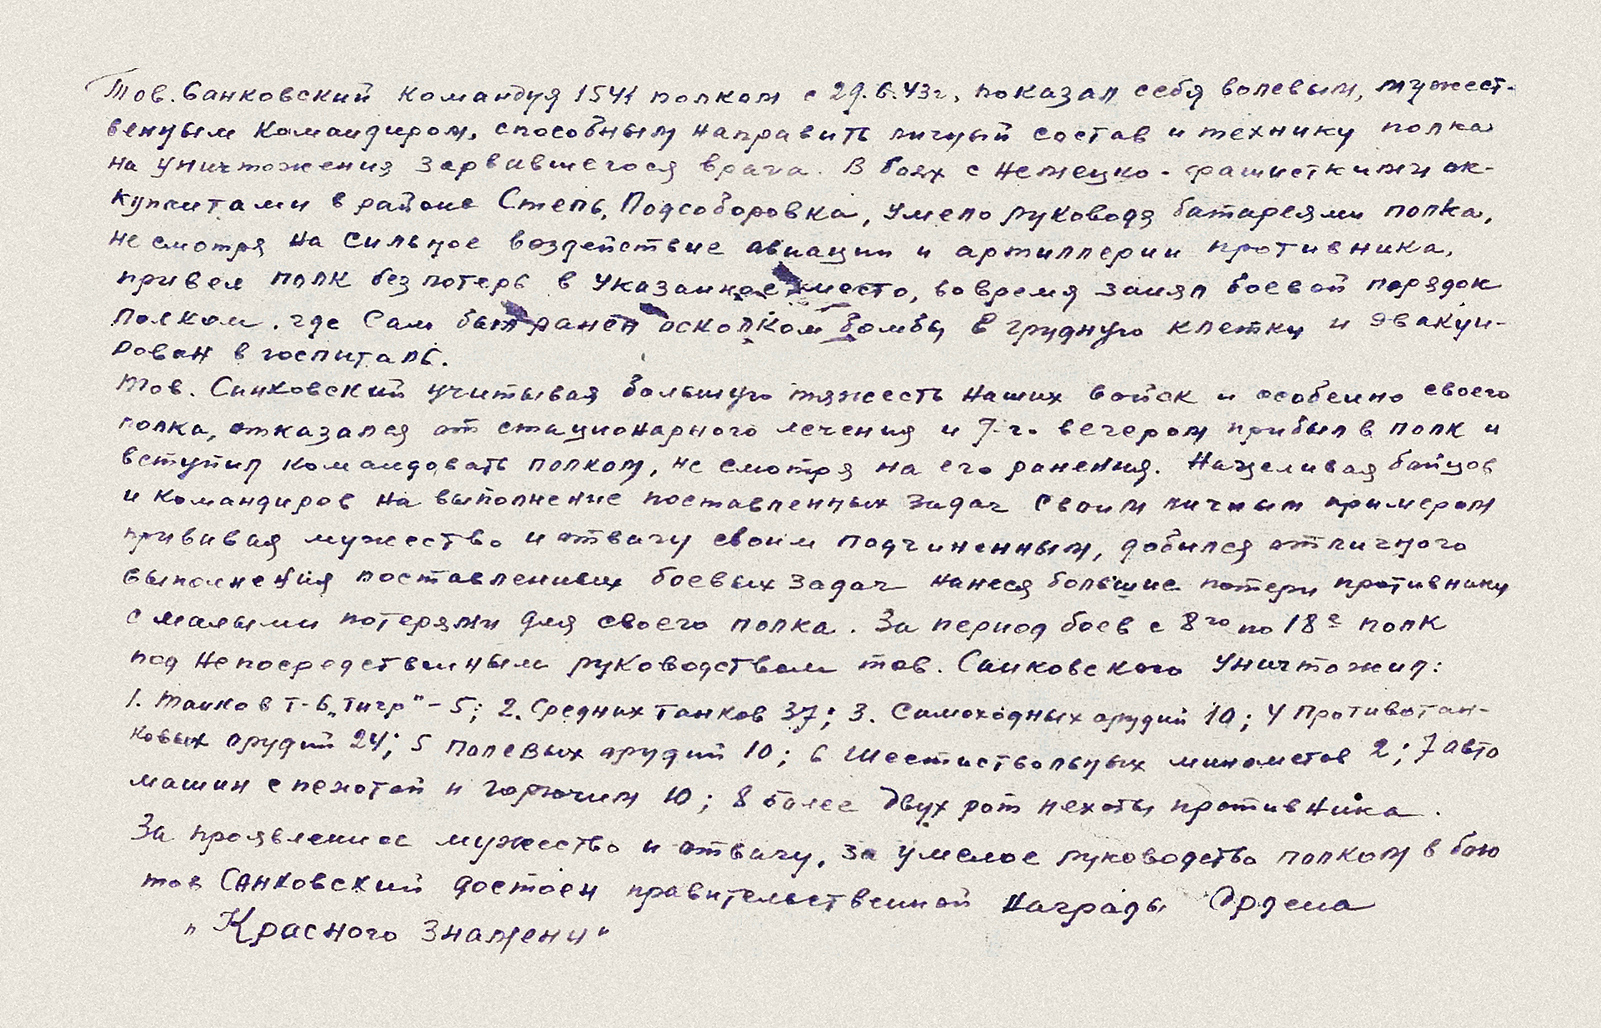 Тов. Санковский командуя 1541 полком с 29.6.43г, показал себя волевым, мужест-
венным командиром, способным направить личный состав и технику полка
на уничтожения зарвавшегося врага. В боях с немецко-фашисткими ок-
купантами в районе Степь, Подсоборовка, умело руководя батареями полка,
не смотря на сильное воздействие авиации и артиллерии противника,
привел полк без потерь в указанное место, вовремя занял боевой порядок
полком, где сам был ранен осколком бомбы в грудную клетку и эвакуи-
рован в госпиталь.
Тов. Санковский учитывая большую тяжесть наших войск и особенно своего
полка, отказался от стационарного лечения и 7-г. вечером прибыл в полк и
вступил командовать полком, не смотря на его ранения. Нацеливая бойцов
и командиров на выполнение поставленных задач своим личным примером
прививая мужество и отвагу своим подчиненным, добился отличного
выполнения поставленных боевых задач нанеся большие потери противнику
с малыми потерями для своего полка. За период боев с 8го по 18е полк
под непосредственным руководством тов. Санковского уничтожил:
1. Танков Т-6 „Тигр" - 5; 2. Средних танков 37; 3. Самоходных орудий 10; 4 Противотан-
ковых орудий 24; 5 Полевых орудий 10; 6 Шестиствольных минометов 2; 7 авто
машин с пехотой и горючим 10; 8 более двух рот пехоты противника.
За проявленное мужество и отвагу, за умелое руководство полком в бою
тов Санковский достоен правительственной награды Ордена
„Красного Знамени"